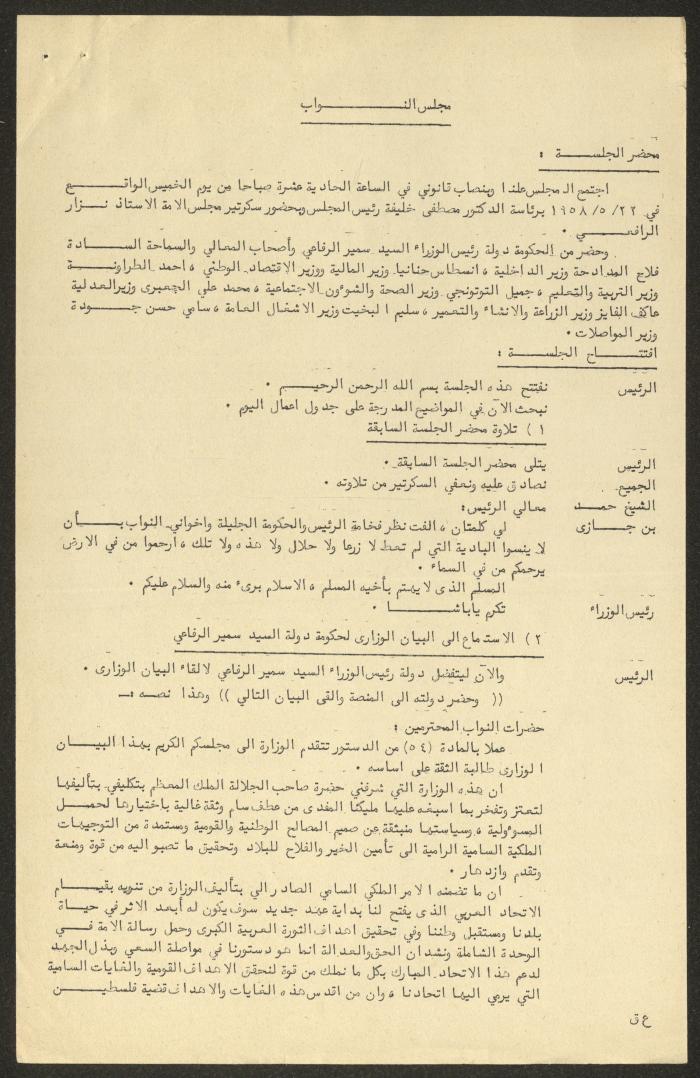 مجلس النواب
محضر الجلسة :
اجتمع المجلس علنا وبنصاب قانوني في الساعة الحادية عشرة صباحا من يوم الخميس الواقع
في ٢٢/٥/١٩٥٨ برئاسة الدكتور مصطفى خليفة رئيس المجلس وبحضور سكرتير مجلس الامة الاستاذ نزار
الرافعي .
وحضر من الحكومة دولة رئيس الوزراء السيد سمير الرفاعي وأصحاب المعالي والسماحة السادة
فلاح المدادحة وزير الداخلية ، انسطاس حنانيا وزير المالية ووزير الاقتصاد الوطني ، احمد الطراونة
وزير التربية والتعليم ، جميل التوتونجي وزير الصحة والشوءون الاجتماعية ، محمد علي الجعبرى وزير العدلية
عاكف الفايز وزير الزراعة والانشاء والتعمير ، سليم البخيت وزير الاشغال العامة ، سامي حسن جودة
وزير المواصلات .
افتتاح الجلسة :
الرئيس نفتتح هذه الجلسة بسم الله الرحمن الرحيم .
نبحث الآن في المواضيع المدرجة على جدول اعمال اليوم .
١ ) تلاوة محضر الجلسة السابقة
الرئيس يتلى محضر الجلسة السابقة .
الجميع نصادق عليه ونعفي السكرتير من تلاوته .
الشيخ حمد معالي الرئيس:
بن جازى لي كلمتان ، الفت نظر فخامة الرئيس والحكومة الجليلة واخواني النواب بأن
لا ينسوا البادية التي لم تعط لا زرعا ولا حلال ولا هذه ولا تلك ، ارحموا من في الارض
يرحمكم من في السماء .
المسلم الذى لا يهتم بأخيه المسلم ، الاسلام برىء منه والسلام عليكم .
رئيس الوزراء تكرم ياباشا .
٢ ) الاستماع الى البيان الوزارى لحكومة دولة السيد سمير الرفاعي
الرئيس والآن ليتفضل دولة رئيس الوزراء السيد سمير الرفاعي لالقاء البيان الوزارى .
(( وحضر دولته الى المنصة والقى البيان التالي )) وهذا نصه :ـ
حضرات النواب المحترمين :
عملا بالمادة (٥٤) من الدستور تتقدم الوزارة الى مجلسكم الكريم بهذا البيان
الوزارى طالبة الثقة على اساسه .
ان هذه الوزارة التي شرفني حضرة صاحب الجلالة الملك المعظم بتكليفي بتأليفها
لتعتز وتفخر بما اسبغه عليها مليكنا المفدى من عطف سام وثقة غالية باختيارها لحمل
المسوءولية ، وسياستها منبثقة عن صميم المصالح الوطنية والقومية ومستمدة من التوجيهات
الملكية السامية الرامية الى تأمين الخير والفلاح للبلاد وتحقيق ما تصبو اليه من قوة ومنعة
وتقدم وازدهار .
ان ما تضمنه الامر الملكي السامي الصادر الي بتأليف الوزارة من تنويه بقيام
الاتحاد العربي الذى يفتح لنا بداية عهد جديد سوف يكون له أبعد الاثر في حياة
بلدنا ومستقبل وطننا وفي تحقيق اهداف الثورة العربية الكبرى وحمل رسالة الامة في
الوحدة الشاملة ونشدان الحق والعدالة انما هو دستورنا في مواصلة السعي وبذل الجهد
لدعم هذا الاتحاد المبارك بكل ما نملك من قوة لنحقق الاهداف القومية والغايات السامية
التي يرمي اليها اتحادنا ، وان من اقدس هذه الغايات والاهداف قضية فلسطين
ع ق